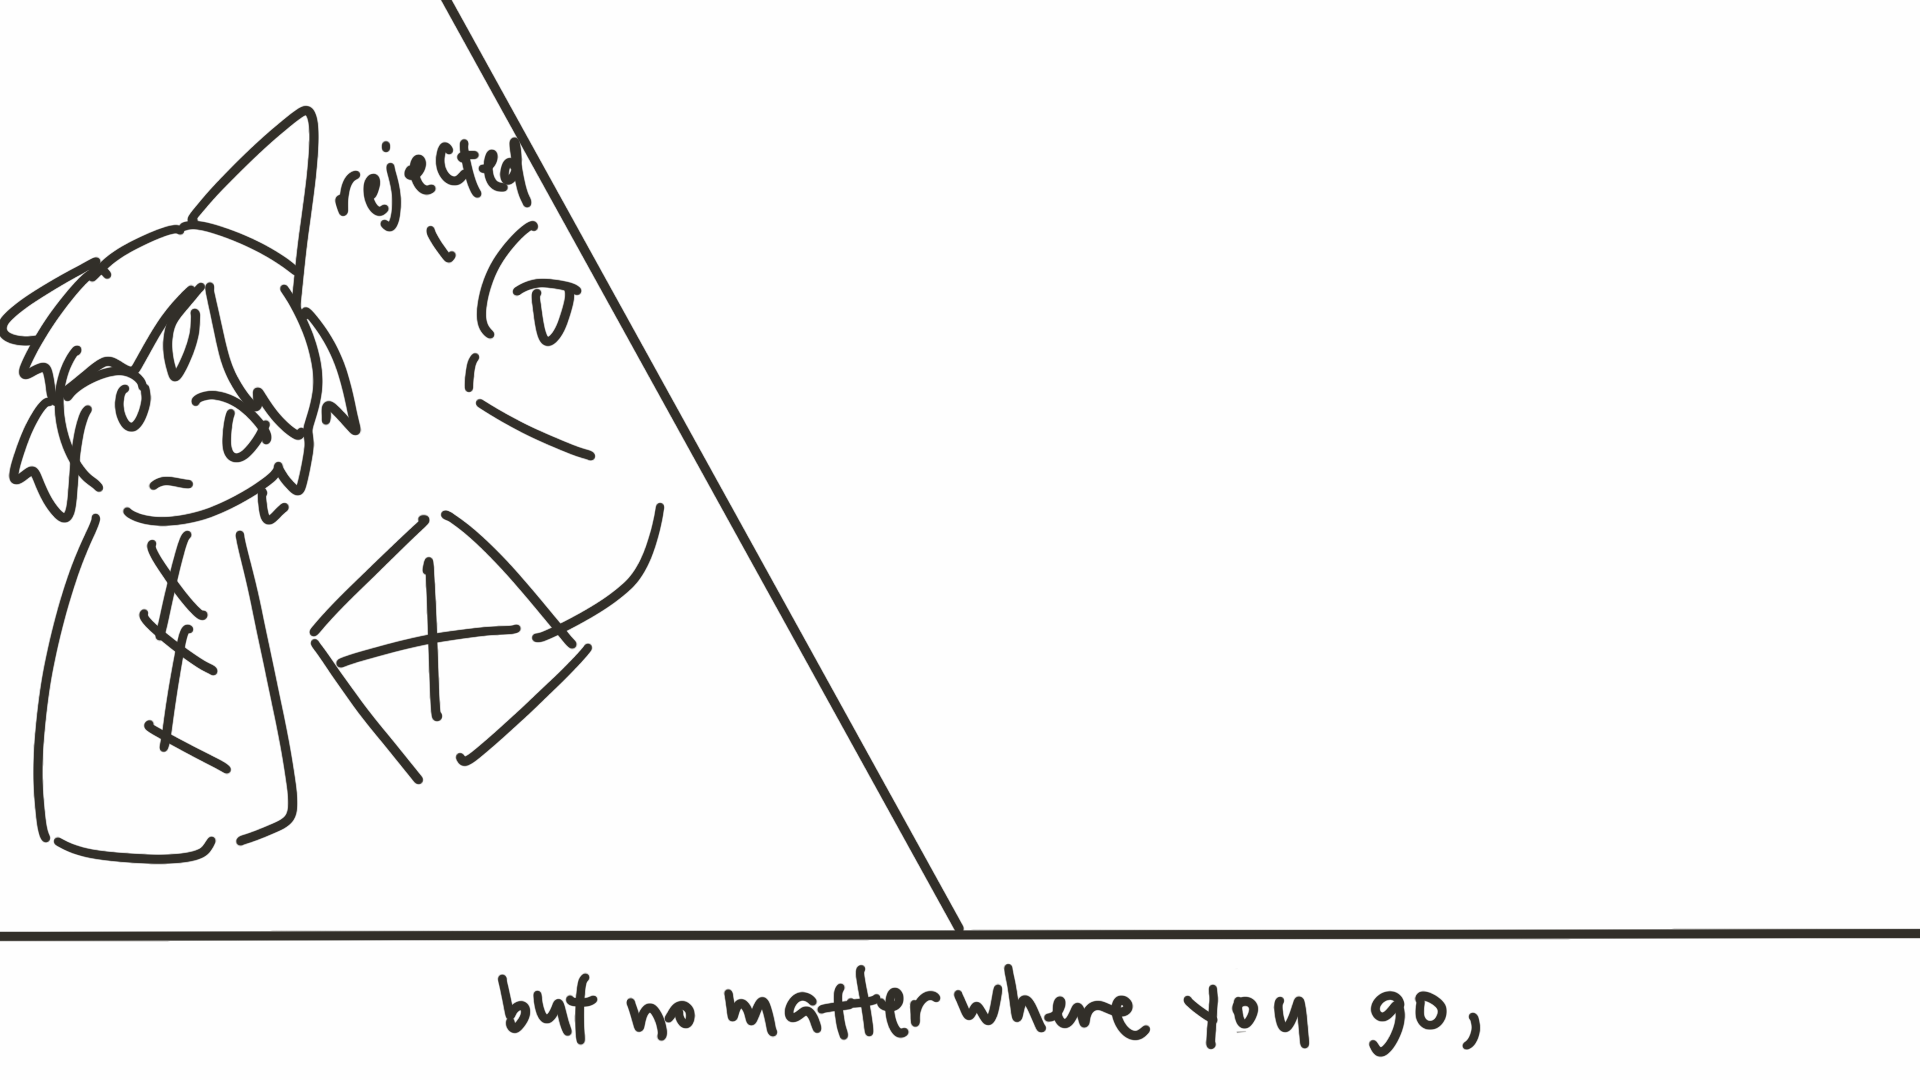 rejected
but no matter where you go,